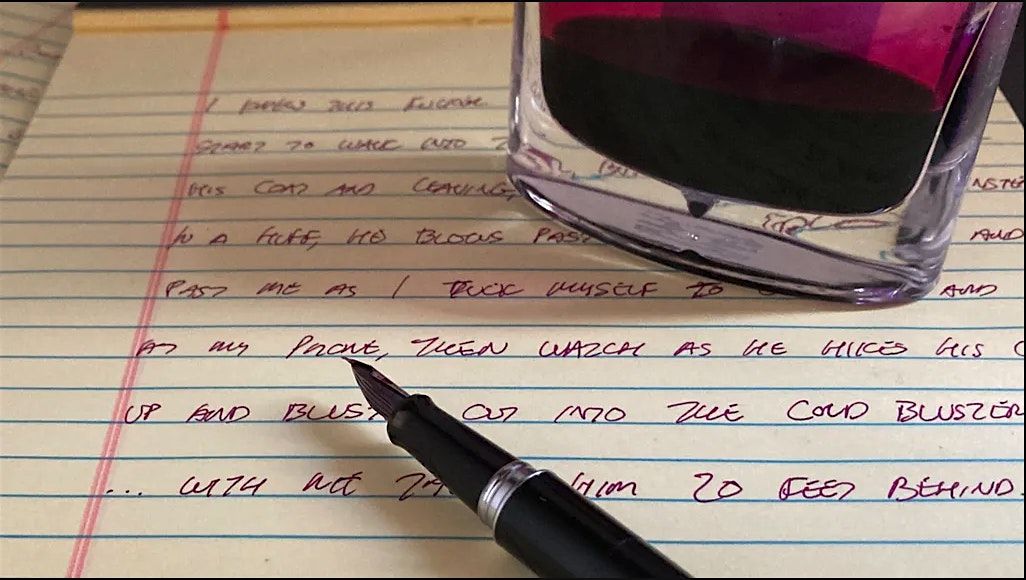 I
START TO WALK INTO
HIS COAT AND LEAVING,
IN A HUFF, HE BLOWS PAST AND
PAST ME AS I TUCK MYSELF TO AND
AT MY PHONE, THEN WATCH AS HE HIKES HIS
UP AND OUT INTO THE COLD BLUSTER
... WITH ME HIM 20 FEET BEHIND.